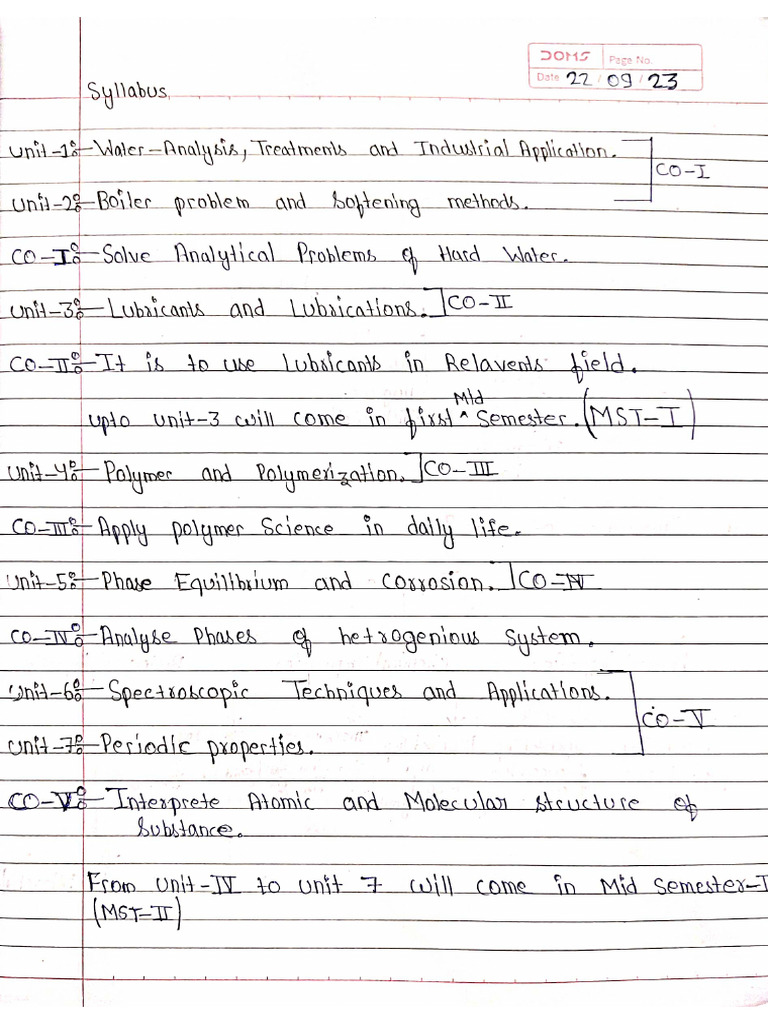 DOMS Page No.
Date 22/09/23
Syllabus
Unit-1:- Water-Analysis, Treatments and Industrial Application.
CO-I
Unit-2:- Boiler problem and Softening methods.
CO-I:- Solve Analytical Problems of Hard Water.
Unit-3:- Lubricants and Lubrications.] CO-II
CO-II:- It is to use Lubricants in Relavents field.
Mid
upto unit-3 will come in first ^ Semester. (MST-I)
Unit-4:- Polymer and Polymerization.] CO-III
CO-III:- Apply polymer Science in daily life.
Unit-5:- Phase Equilibrium and Corrosion.] CO-IV
CO-IV:- Analyse Phases of hetrogenious System.
Unit-6:- Spectroscopic Techniques and Applications.
CO-V
Unit-7:- Periodic properties.
CO-V:- Interprete Atomic and Molecular structure of
Substance.
From Unit-IV to unit 7 will come in Mid Semester-I
(MST-II)